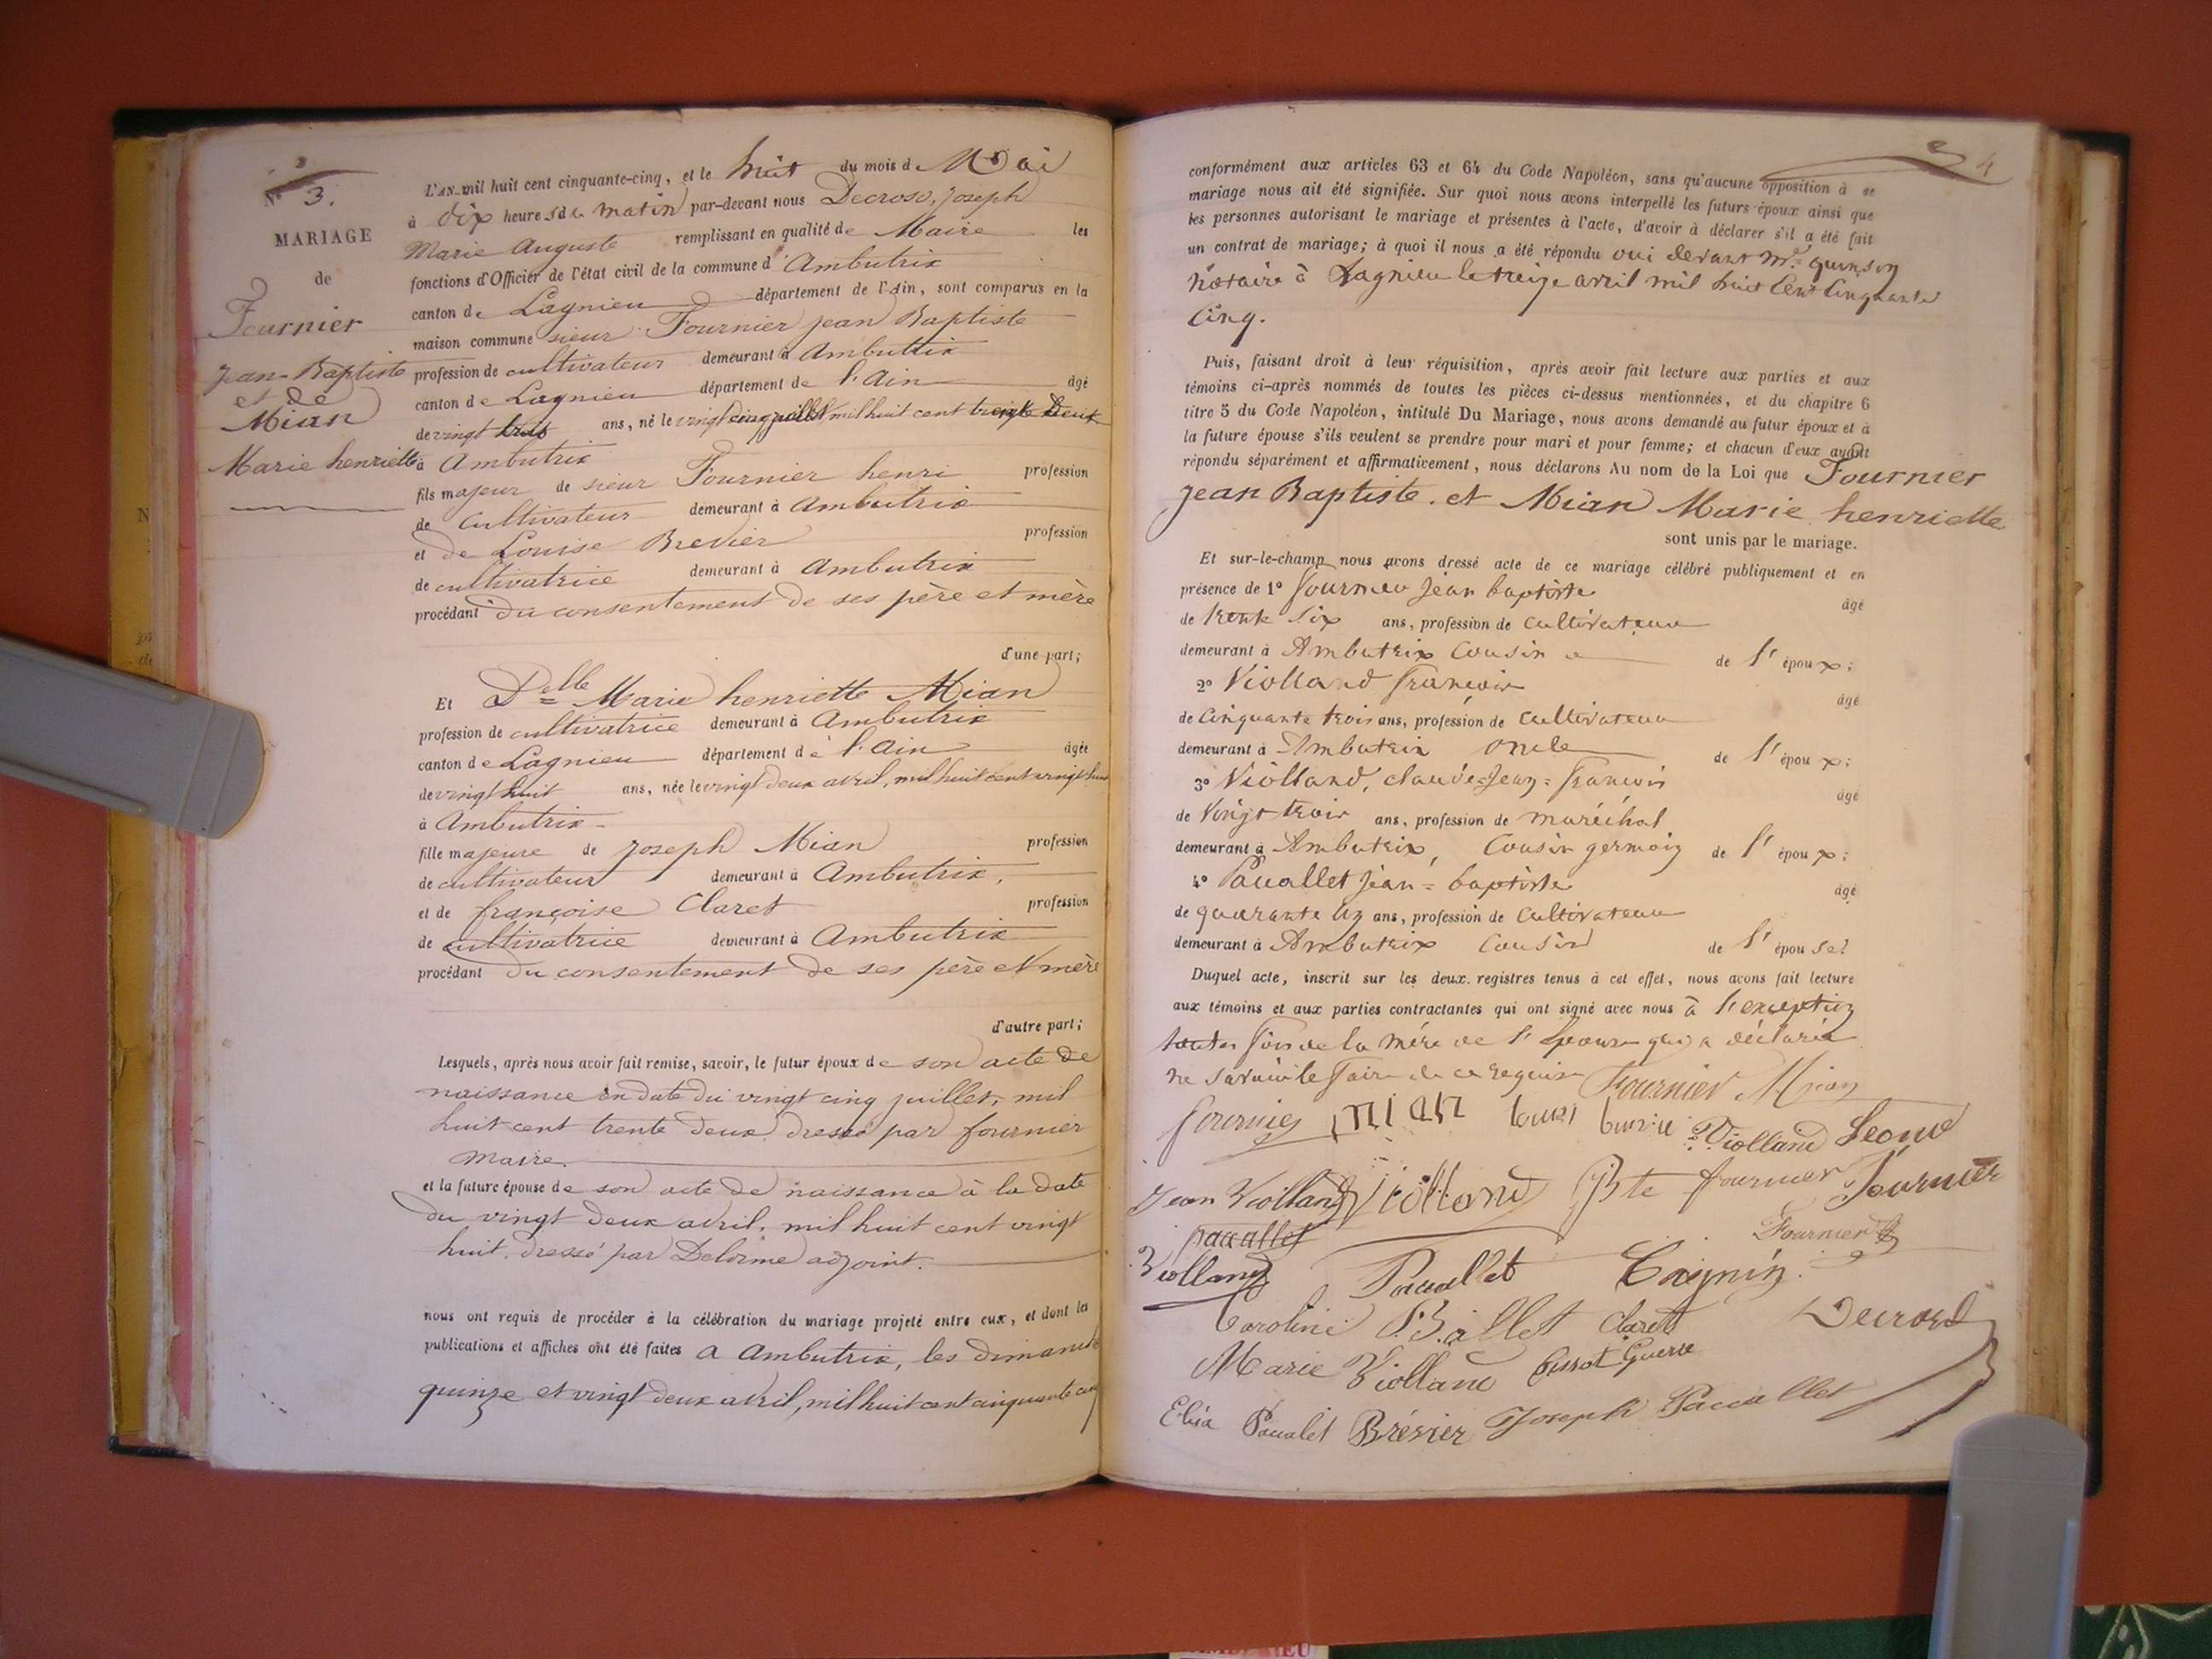 N° 3.
MARIAGE
de
Fournier
Jean-Baptiste
et de
Mian
Marie henriette
L'AN mil huit cent cinquante-cinq, et le huit du mois de Mai
à dix heures du matin par-devant nous Decroso, Joseph
Marie Auguste remplissant en qualité de Maire les
fonctions d'Officier de l'état civil de la commune d' Ambutrix
canton de Lagnieu département de l'Ain, sont comparus en la
maison commune sieur Fournier jean Baptiste
profession de cultivateur demeurant à Ambutrix
canton de Lagnieu département de l'Ain âgé
de vingt ans, né le vingt cinq juillet mil huit cent trente deux
à Ambutrix
fils majeur de sieur Fournier henri profession
de cultivateur demeurant à Ambutrix
et de Louise Brevier profession
de cultivatrice demeurant à Ambutrix
procédant du consentement de ses père et mère
d'une part;
Et Delle Marie henriette Mian
profession de cultivatrice demeurant à Ambutrix
canton de Lagnieu département de l'Ain âgée
de vingt huit ans, née le vingt deux avril, mil huit cent vingt huit
à Ambutrix
fille majeure de Joseph Mian profession
de cultivateur demeurant à Ambutrix,
et de françoise Claret profession
de cultivatrice demeurant à Ambutrix
procédant du consentement de ses père et mère
d'autre part;
Lesquels, après nous avoir fait remise, savoir, le futur époux de son acte de
naissance en date du vingt cinq juillet, mil
huit cent trente deux, dressé par fournier
maire.
et la future épouse de son acte de naissance à la date
du vingt deux avril, mil huit cent vingt
huit, dressé par Delorme adjoint.
nous ont requis de procéder à la célébration du mariage projeté entre eux, et dont les
publications et affiches ont été faites à Ambutrix, les dimanche
quinze et vingt deux avril, mil huit cent cinquante cinq
4
conformément aux articles 63 et 64 du Code Napoléon, sans qu'aucune opposition à se
mariage nous ait été signifiée. Sur quoi nous avons interpellé les futurs époux ainsi que
les personnes autorisant le mariage et présentes à l'acte, d'avoir à déclarer s'il a été fait
un contrat de mariage; à quoi il nous a été répondu oui devant Me quinson
notaire à Lagnieu le treize avril mil huit cent cinquante
cinq.
Puis, faisant droit à leur réquisition, après avoir fait lecture aux parties et aux
témoins ci-après nommés de toutes les pièces ci-dessus mentionnées, et du chapitre 6
titre 5 du Code Napoléon, intitulé Du Mariage, nous avons demandé au futur époux et à
la future épouse s'ils veulent se prendre pour mari et pour femme; et chacun d'eux ayant
répondu séparément et affirmativement, nous déclarons Au nom de la Loi que Fournier
Jean Baptiste. et Mian Marie henriette
sont unis par le mariage.
Et sur-le-champ nous avons dressé acte de ce mariage célébré publiquement et en
présence de 1° Fournier Jean baptiste âgé
de trente six ans, profession de cultivateur
demeurant à Ambutrix Cousin de l'époux;
2° Violland françois âgé
de Cinquante trois ans, profession de cultivateur
demeurant à Ambutrix oncle de l'époux;
3° Violland, claude=Jean=francois âgé
de vingt trois ans, profession de maréchal
demeurant à Ambutrix, Cousin germain de l'époux;
4° Pacallet Jean=baptiste âgé
de quarante un ans, profession de cultivateur
demeurant à Ambutrix Cousin de l'épouse
Duquel acte, inscrit sur les deux registres tenus à cet effet, nous avons fait lecture
aux témoins et aux parties contractantes qui ont signé avec nous à l'exception
toutes fois de la mère de l'épouse qui a déclaré
ne savoir le faire de ce requise Fournier Mian
fournier mian Violland Leone
Jean Violland Violland Bte fournier Fournier
pacallet Fournier
Violland Pacallet Cognin
Caroline P.Ballet Claret Decroso
Marie Violland Guerre
Pacalet Brésier Joseph Pacallet